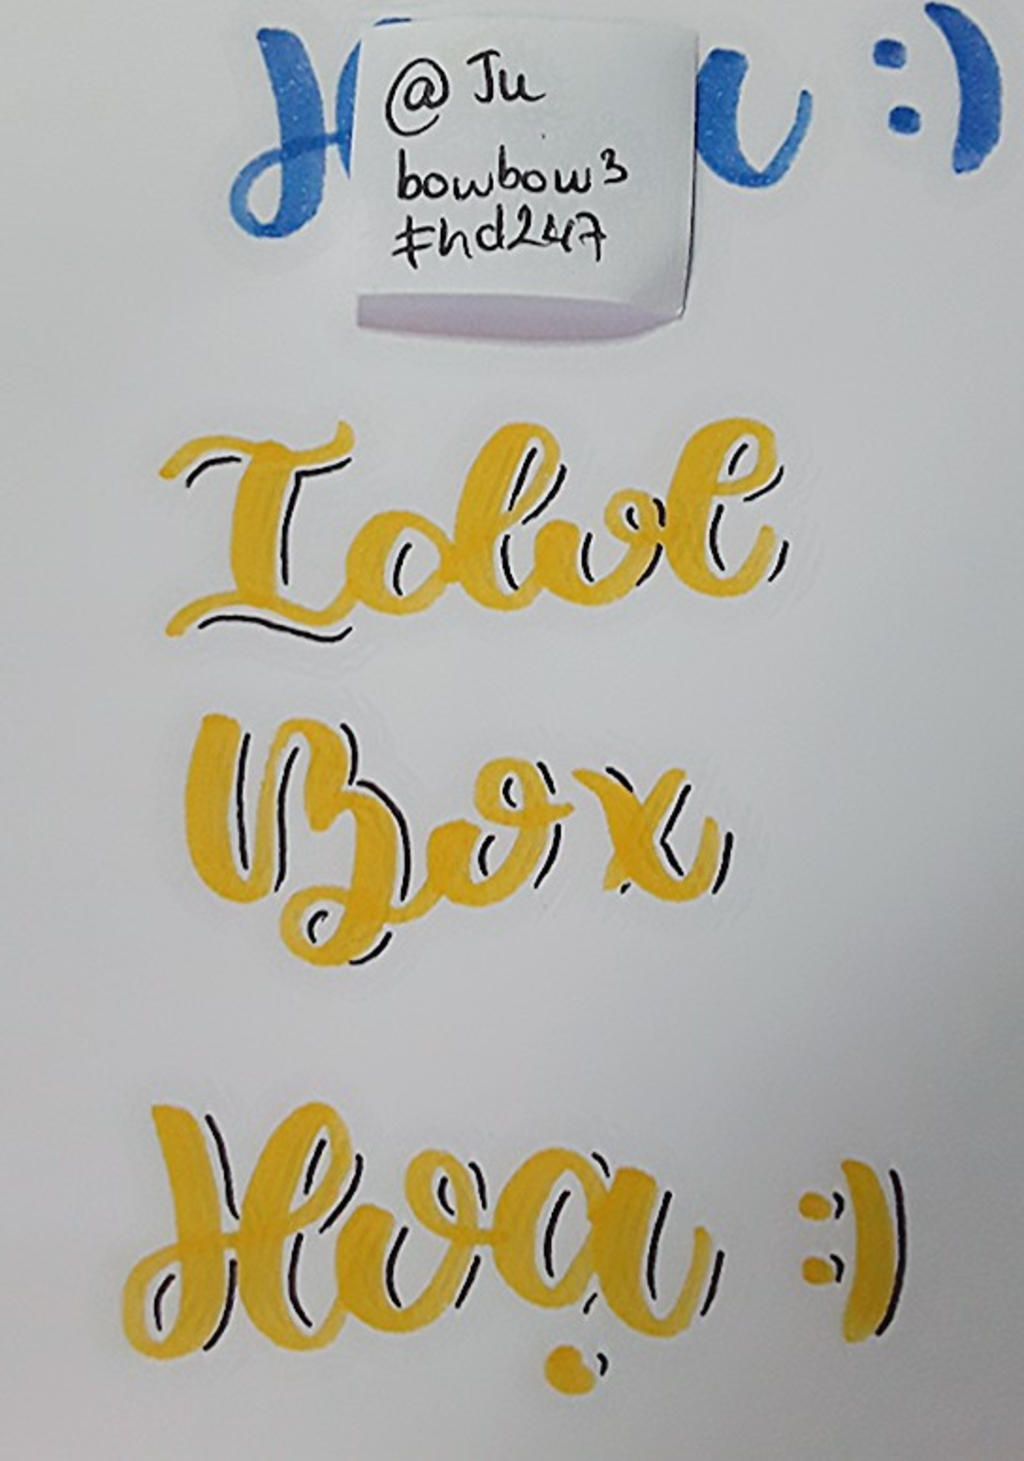 @ Ju
bowbow3
#hd247
:)
Idol
Box
Hoạ :)